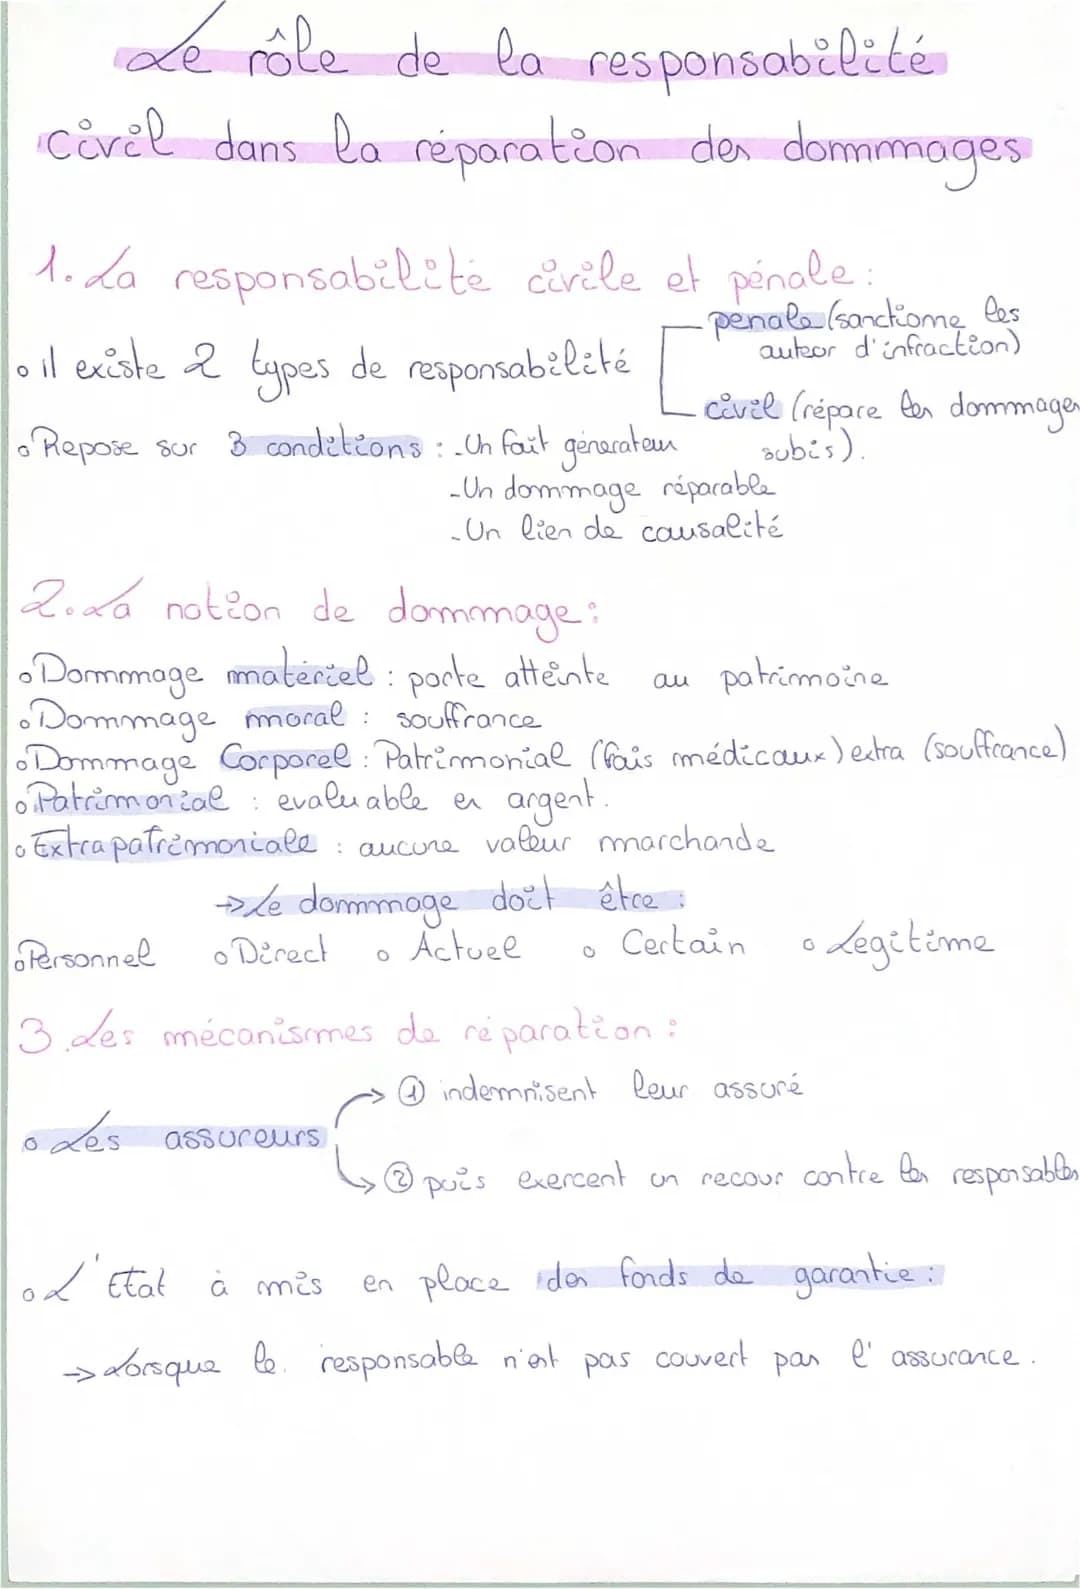 Le rôle de la responsabilité
civil dans la réparation des dommages
1. La responsabilité civile et pénale :
penale (sanctionne les
auteor d'infraction)
o il existe 2 types de responsabilité
civil (répare les dommages
subis).
o Repose sur 3 conditions : - Un fait génerateur
- Un dommage réparable
- Un lien de causalité
2. La notion de dommage :
o Dommage matériel : porte atteinte au patrimoine
o Dommage moral : souffrance
o Dommage Corporel : Patrimonial (frais médicaux) extra (souffrance)
o Patrimonial : evaluable en argent.
o Extrapatrimoniale : aucune valeur marchande
→ Le dommage doit être :
o Personnel o Direct o Actuel o Certain o Legitime
3. Les mécanismes de réparation :
→ ① indemnisent leur assuré
o Les assureurs
→ ② puis exercent un recour contre les responsables
o L'Etat à mis en place des fonds de garantie :
→ Lorsque le responsable n'est pas couvert par l'assurance.